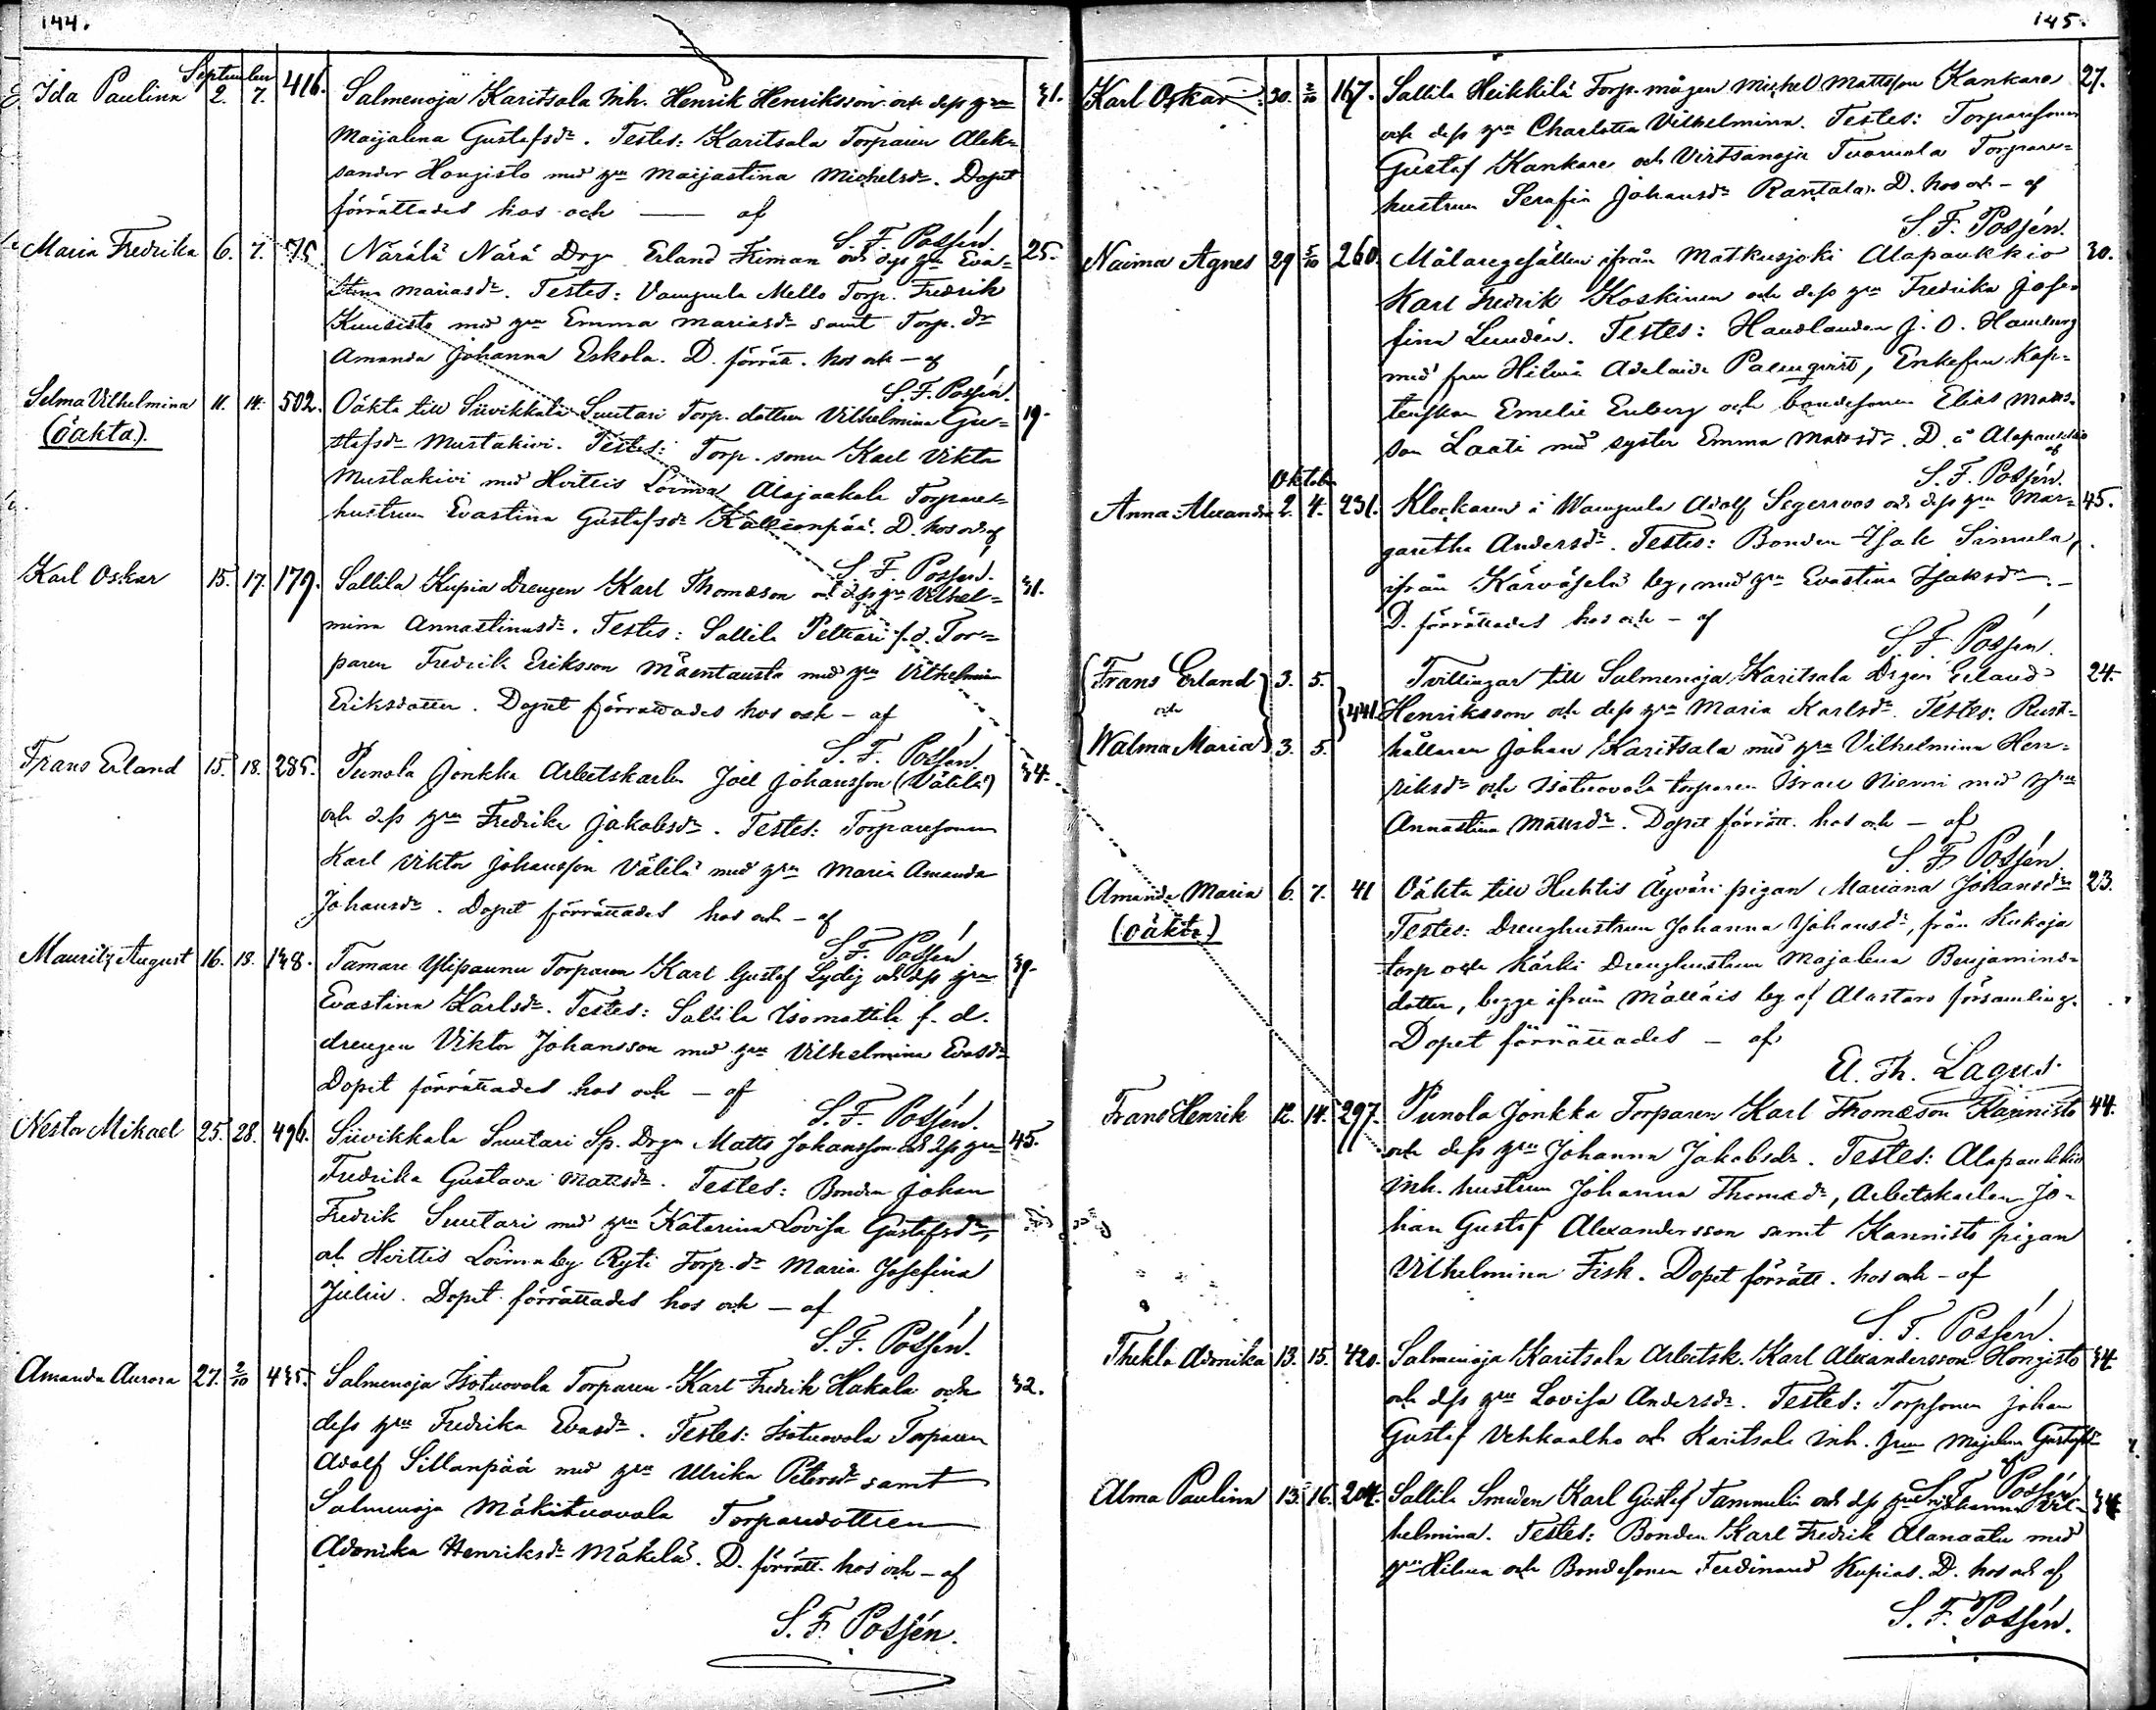 144.
September
Ida Paulina 2. 7. 416. Salmenoja Karitsala Inh. Henrik Henriksson och dess hru 31.
Maijalena Gustafsdr. Testes: Karitsala Torparen Alek=
sander Hongisto med hru Maijastina Michelsdr. Dopet
förrättades hos och — af
S. F. Possén.
Maria Fredrika 6. 7. 75. Närälä Närä Drgn Erland Friman och dess hru Eva= 25.
stina Mariasdr. Testes: Vampula Mello Torp. Fredrik
Kuusisto med hru Emma Mariasdr samt Torp. dr
Amanda Johanna Eskola. D. förrätt. hos och — af
S. F. Possén.
Selma Vilhelmina 11. 14. 502. Oäkta till Siivikkala Suutari Torp. dottren Vilhelmina Gu= 19.
(oäkta). stafsdr Mustakivi. Testes: Torp. sonen Karl Viktor
Mustakivi med Hvittis Loima Alajaakola Torpare=
hustrun Evastina Gustafsdr Kallionpää. D. hos och af
S. F. Possén.
Karl Oskar 15. 17. 179. Sallila Kupia Drengen Karl Thomason och dess hru Vilhel= 31.
mina Annastinasdr. Testes: Sallila Pelttari f.d. Tor=
paren Fredrik Eriksson Mäentausta med hru Vilhelmina
Eriksdotter. Dopet förrättades hos och — af
S. F. Possén.
Frans Erland 15. 18. 285. Punola Jonkka Arbetskarlen Joel Johansson (Välilä) 34.
och dess hru Fredrika Jakobsdr. Testes: Torparesonen
Karl Viktor Johansson Välilä med hru Maria Amanda
Johansdr. Dopet förrättades hos och — af
S. F. Possén
Mauritz August 16. 18. 148. Tamare Ylipaunu Torparen Karl Gustaf Lydij och dess hru 39.
Evastina Karlsdr. Testes: Sallila Isomattila f. d.
drengen Viktor Johansson med hru Vilhelmina Evasdr
Dopet förrättades hos och — af
S. F. Possén.
Nestor Mikael 25. 28. 496. Siivikkala Suutari Sp. Drgn Matts Johansson och dess hru 45.
Fredrika Gustava Mattsdr. Testes: Bonden Johan
Fredrik Suutari med hru Katarina Lovisa Gustafsdr,
och Hvittis Loima by Ryti Torp. dr Maria Josefina
Juliu. Dopet förrättades hos och — af
S. F. Possén.
Amanda Aurora 27. 2/10 435. Salmenoja Isotuovola Torparen Karl Fredrik Hakala och 32.
dess hru Fredrika Evasdr. Testes: Isotuovola Torparen
Adolf Sillanpää med hru Ulrika Petersdr samt
Salmenoja Mäkituovola Torparedottren
Adonika Henriksdr Mäkelä. D. förrätt. hos och — af
S. F. Possén.
145.
Karl Oskar 30. 2/10 167. Sallila Heikkilä Torp. mågen Michel Mattsson Kankare 27.
och dess hru Charlotta Vilhelmina. Testes: Torparesonen
Gustaf Kankare och Virtsanoja Tuomola Torpare=
hustrun Serafia Johansdr Rantala. D. hos och — af
S. F. Possén.
Naima Agnes 29 5/10 260. Målaregesällen ifrån Matkusjoki Alapaukkio 30.
Karl Fredrik Koskinen och dess hru Fredrika Jose=
fina Lundén. Testes: Handlanden J. O. Hamberg
med fru Hilma Adelaide Palmqvist, Enkefru Kap=
tenskan Emelie Enberg och bondesonen Elias Matts=
son Laati med syster Emma Mattsdr. D. å Alapaukkio
af
S. F. Possén.
Oktober
Anna Alexandra 2. 4. 231. Klockaren i Wampula Adolf Segerroos och dess hru Mar= 45.
garetha Andersdr. Testes: Bonden Isak Simula,
ifrån Kärväselä by, med hru Evastina Isaksdr. —
D. förrättades hos och — af
S. F. Possén.
Frans Erland 3. 5. Tvillingar till Salmenoja Karitsala Drgn Erland 24.
och 441. Henriksson och dess hru Maria Karlsdr. Testes: Rust=
Walma Maria 3. 5. hållaren Johan Karitsala med hru Vilhelmina Hen=
riksdr och Isotuovola torparen Israel Niemi med hru
Annastina Mattsdr. Dopet förrätt. hos och — af
S. F. Possén
Amanda Maria 6. 7. 41 Oäkta till Huhtis Äyväri pigan Mariana Johansdr 23.
(oäkta) Testes: Drenghustrun Johanna Johansdr, från Kukoja
torp och Kärki Drenghustrun Majalena Benjamins=
dotter, begge ifrån Mälläis by af Alastaro församling.
Dopet förrättades — af
El. Th. Lagus.
Frans Henrik 12. 14. 297. Punola Jonkka Torparen Karl Thomason Kannisto 44.
och dess hru Johanna Jakobsdr. Testes: Alapaukkio
Inh. hustrun Johanna Thomasdr, Arbetskarlen Jo=
han Gustaf Alexandersson samt Kannisto pigan
Vilhelmina Fisk. Dopet förrätt. hos och — af
S. F. Possén.
Thekla Adonika 13. 15. 420. Salmenoja Karitsala Arbetsk. Karl Alexandersson Hongisto 34
och dess hru Lovisa Andersdr. Testes: Torpsonen Johan
Gustaf Vehkaalho och Karitsala Inh. hrun Majalena Gustafsdr
af S. F. Possén
Alma Paulina 13. 16. 204. Sallila Smeden Karl Gustaf Tammelin och dess hru Johanna Vil= 34
helmina. Testes: Bonden Karl Fredrik Alanaatu med
hru Hilma och Bondesonen Ferdinand Kupias. D. hos och af
S. F. Possén.